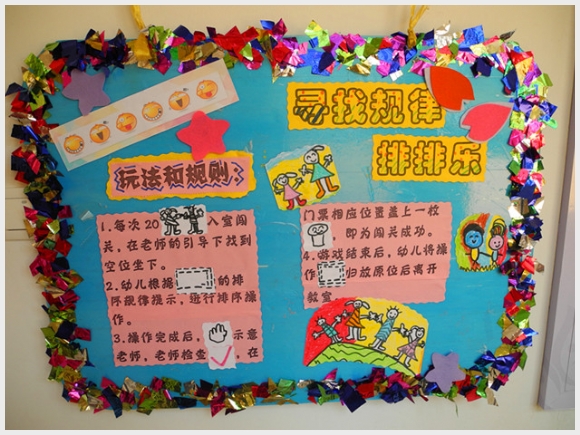 寻找规律
排排乐
玩法和规则:
1.每次20 入室闯
关，在老师的引导下找到
空位坐下。
2.幼儿根据 的排
序规律提示，进行排序操
作。
3.操作完成后， 示意
老师，老师检查 ，在
门票相应位置盖上一枚
，即为闯关成功。
4.游戏结束后，幼儿将操
作 归放原位后离开
教室